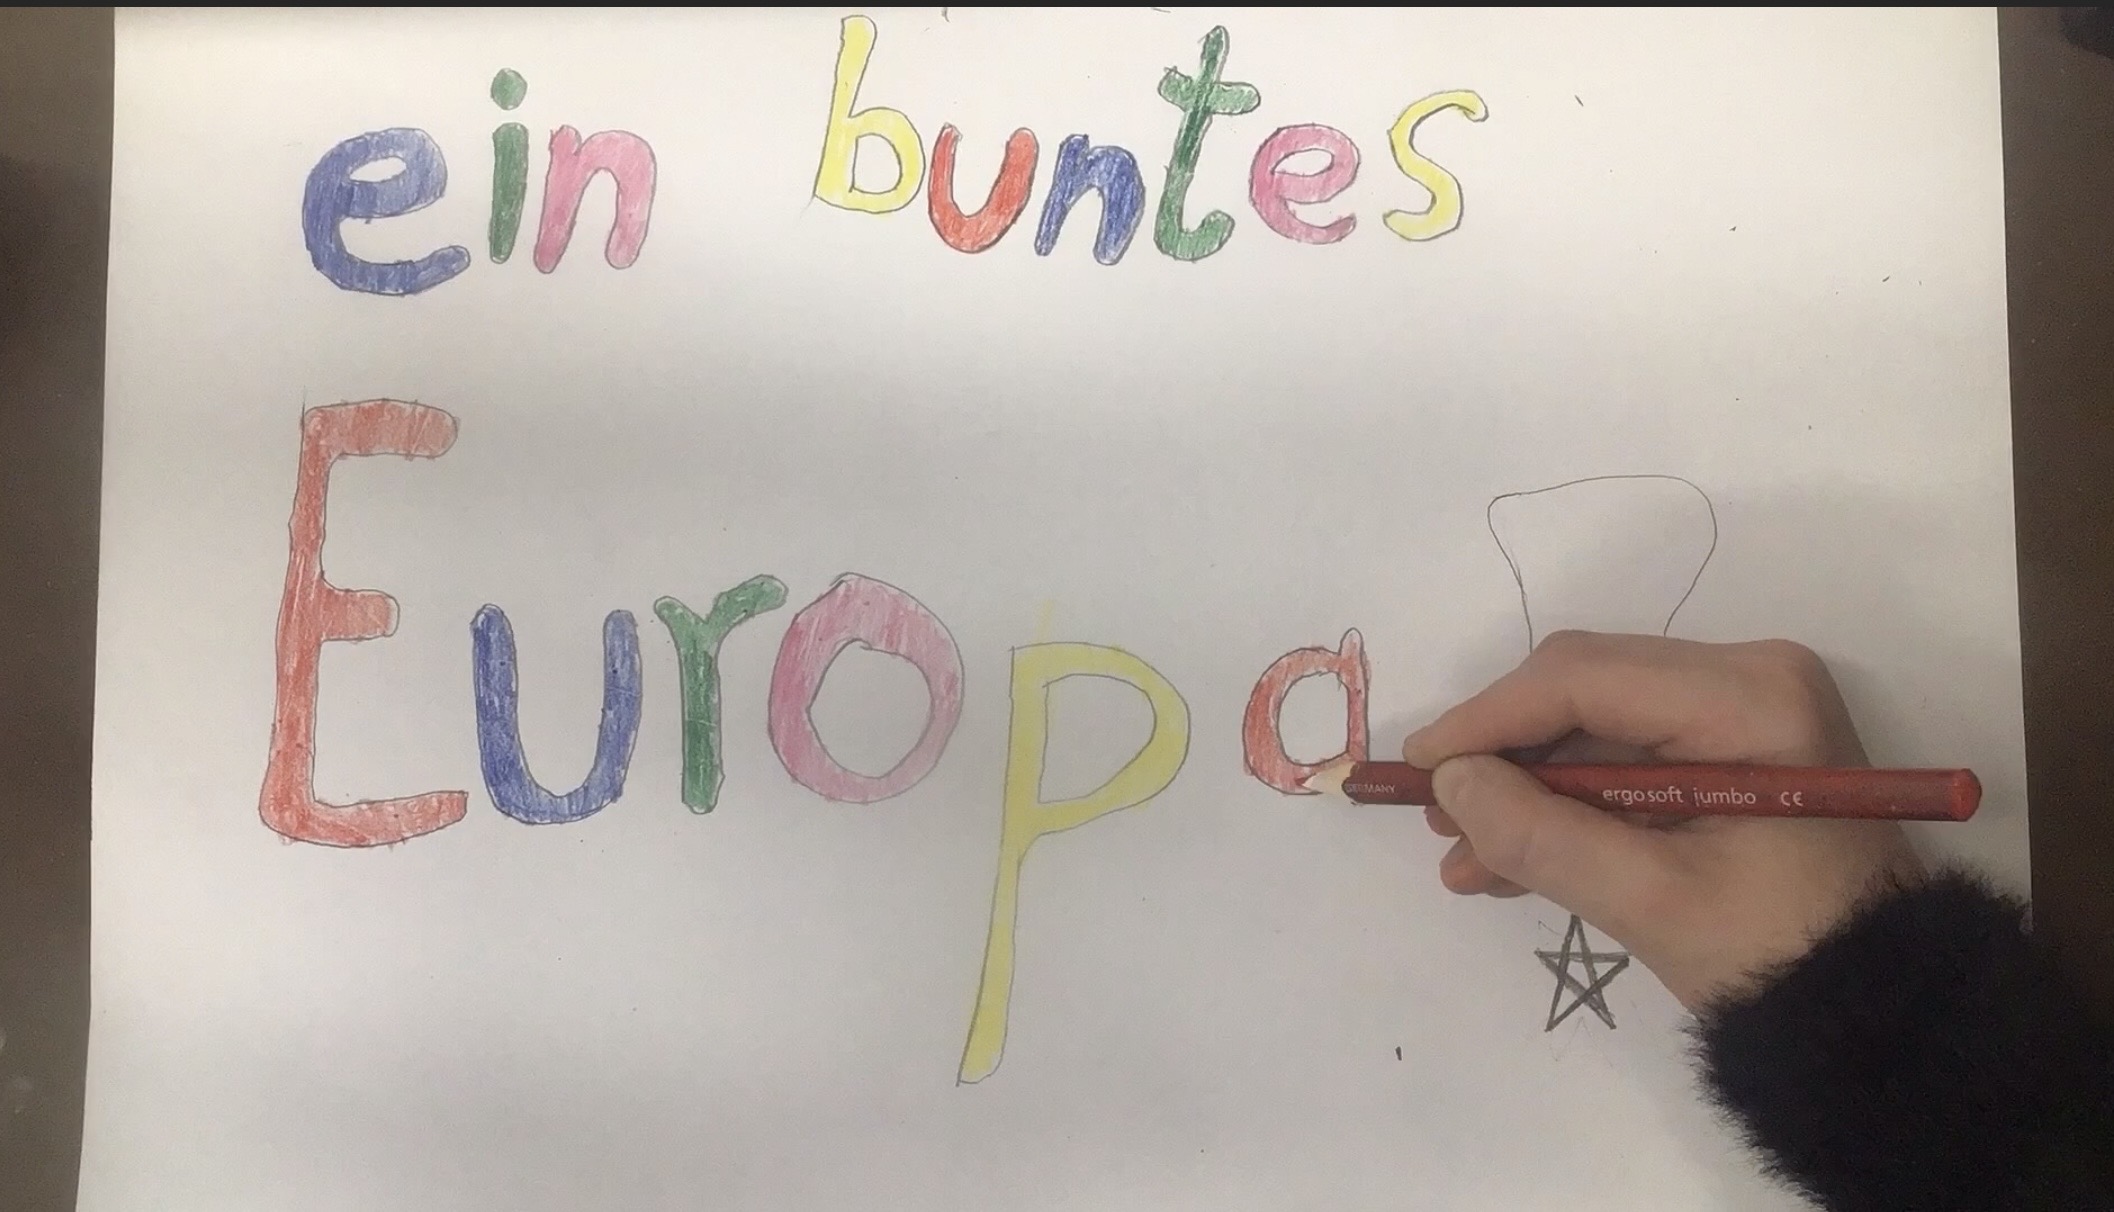 ein buntes
Europa
GERMANY
ergosoft jumbo CE